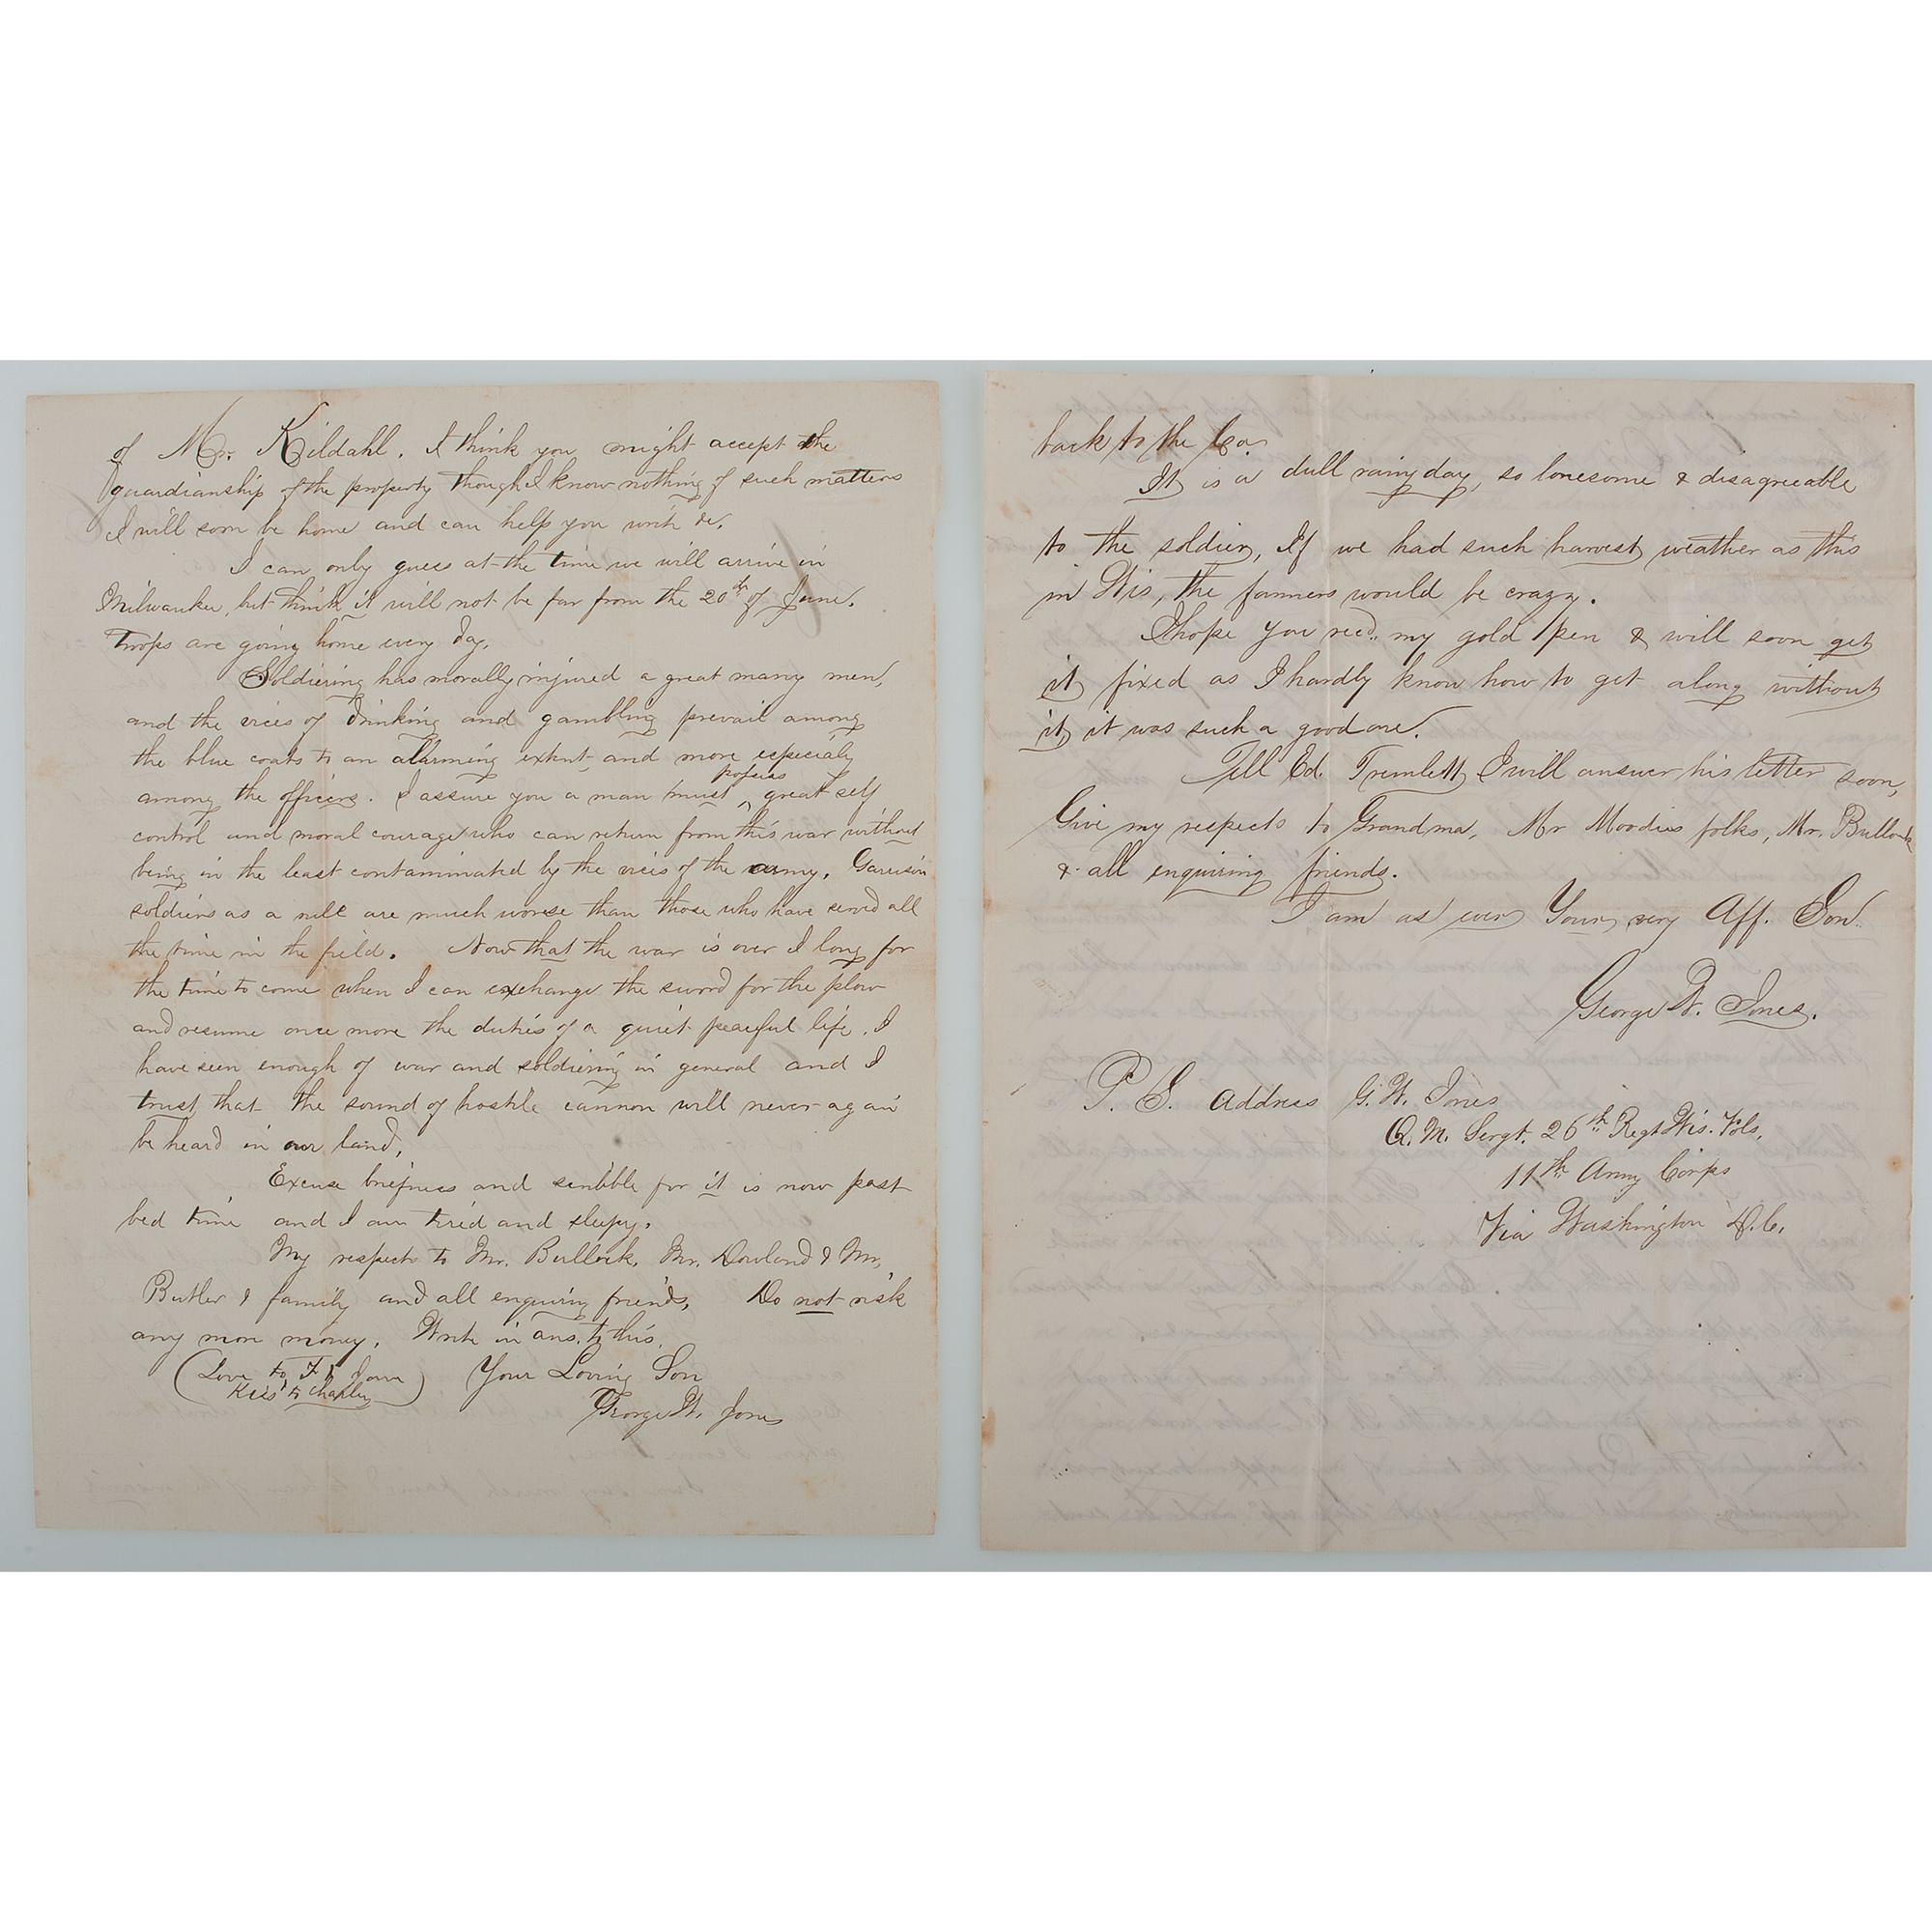 of Mr. Kildahl. I think you might accept the
guardianship of the property though I know nothing of such matters
I will soon be home and can help you with it.
I can only guess at the time we will arrive in
Milwaukee, but think it will not be far from the 20th of June.
Troops are going home every day.
Soldiering has morally injured a great many men,
and the vices of drinking and gambling prevail among
the blue coats to an allarming extent, and more especialy
among the officers. I assure you a man must possess great self
control and moral courage who can return from this war without
being in the least contaminated by the vices of the army. Garrison
soldiers as a rule are much worse than those who have served all
the time in the field. Now that the war is over I long for
the time to come when I can exchange the sword for the plow
and resume once more the duties of a quiet peaceful life. I
have seen enough of war and soldiering in general and I
trust that the sound of hostile cannon will never again
be heard in our land.
Excuse briefness and scribble for it is now past
bed time and I am tired and sleepy.
My respect to Mr. Bullock, Mr. Dowland & Mr.
Butler & family and all enquiring friends. Do not risk
any more money. Write in ans. to this.
(Love to F & Jane Your Loving Son
Kiss to Charley) George W. Jones
back to the Co.
It is a dull rainy day, so lonesome & disagreeable
to the soldier, If we had such harvest weather as this
in Wis, the farmers would be crazy.
I hope you recd. my gold pen & will soon get
it fixed as I hardly know how to get along without
it, it was such a good one.
Tell Ed. Tremlett I will answer his letter soon,
Give my respects to Grandma, Mr Moodies folks, Mr. Bullock
& all enquiring friends.
I am as ever Your very Aff. Son.
George W. Jones.
P. S. Address G. W. Jones
Q. M. Sergt. 26th Regt Wis. Vols.
11th Army Corps
Via Washington D. C.